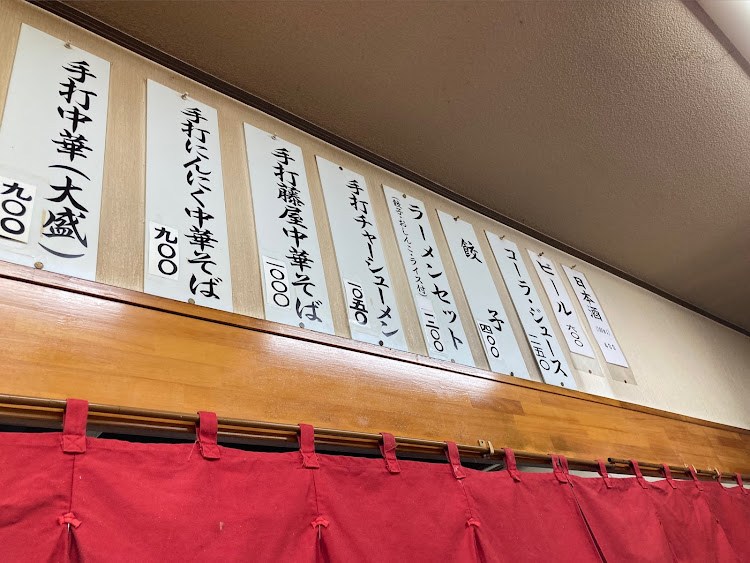 手打中華(大盛)
九〇〇
手打にんにく中華そば
九〇〇
手打藤屋中華そば
一〇〇〇
手打チャーシューメン
一〇五〇
ラーメンセット
(餃子・おしんこ・ライス付)
一二〇〇
餃子
四〇〇
コーラ・ジュース
二五〇
ビール
六〇〇
日本酒